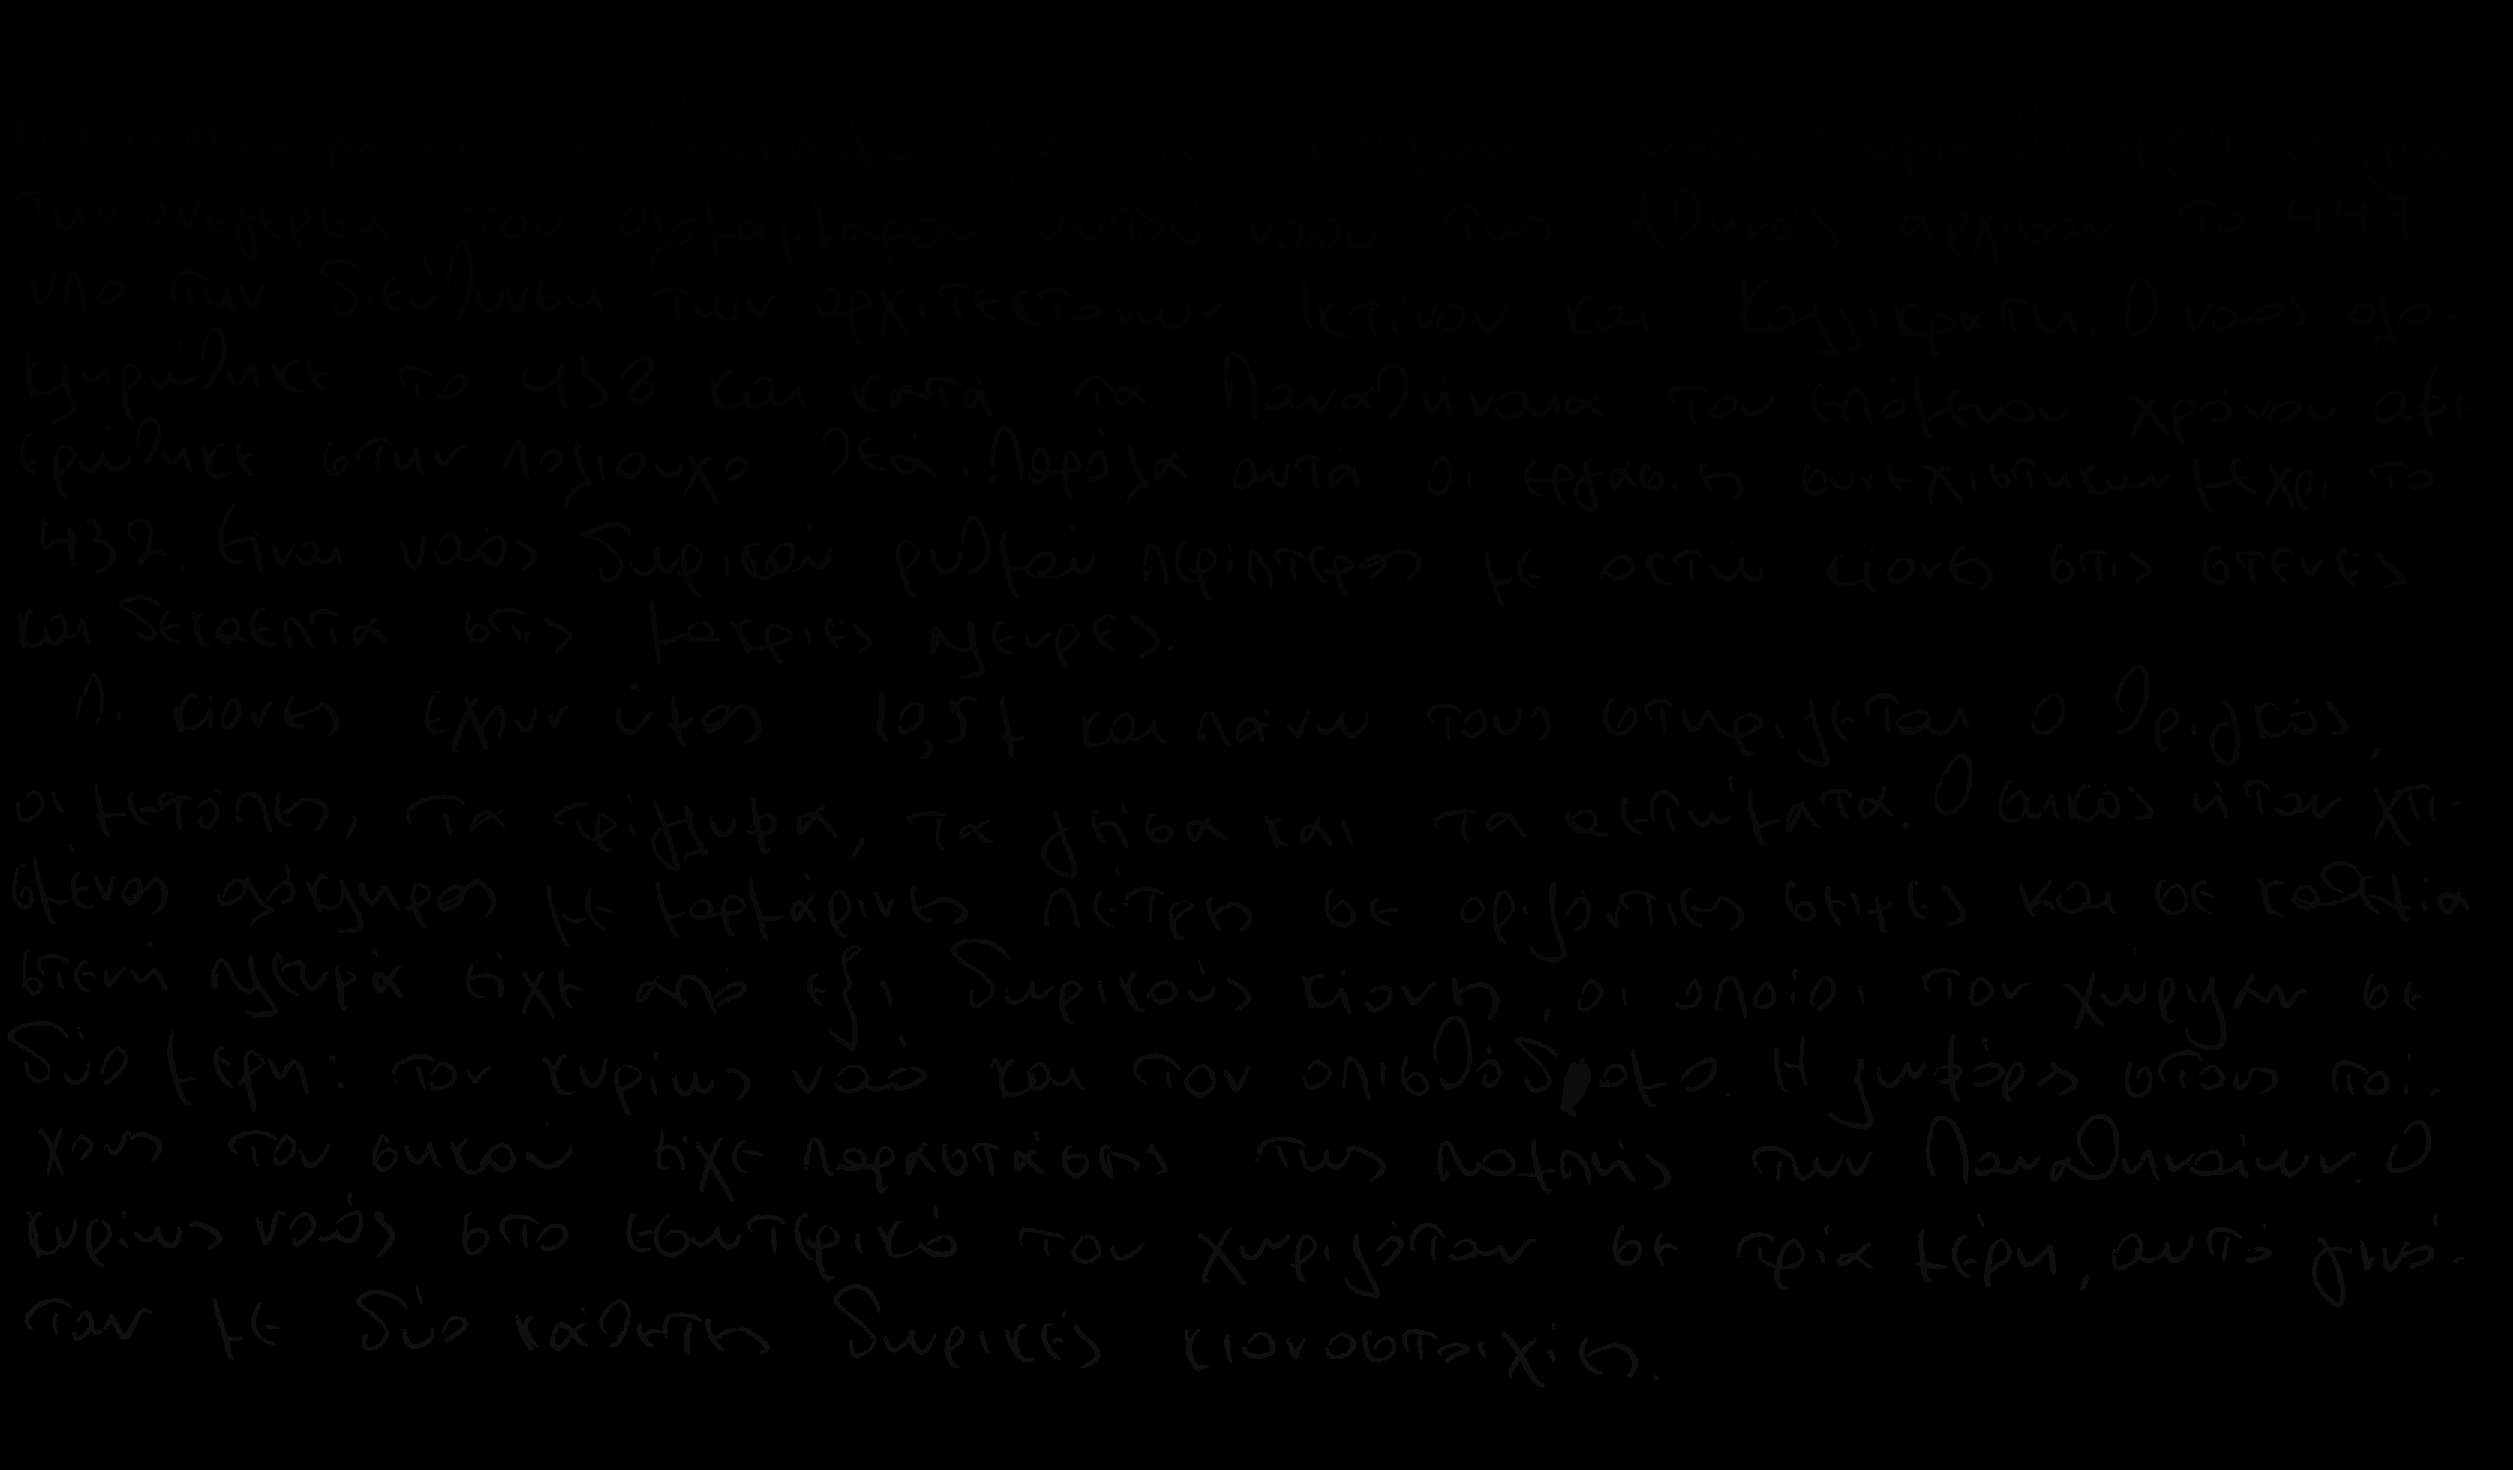 Ο Παρθενώνας
και συγκεντρώνει τον θαυμασμό όλου του κόσμου αιώνες τώρα. Οι εργασίες για
την ανέγερση του ολομάρμαρου αυτού ναού της Αθηνάς άρχισαν το 447
υπό την διεύθυνση των αρχιτεκτόνων Ικτίνου και Καλλικράτη. Ο ναός ολο-
κληρώθηκε το 438 και κατά τα Παναθήναια του επόμενου χρόνου αφι-
ερώθηκε στην πολιούχο θεά. Παρόλα αυτά οι εργασίες συνεχίστηκαν μέχρι το
432. Είναι ναός δωρικού ρυθμού περίπτερος με οκτώ κίονες στις στενές
και δεκαεπτά στις μακριές πλευρές.
Οι κίονες έχουν ύψος 10,5μ και πάνω τους στηριζεται ο θριγκός,
οι μετόπες, τα τρίγλυφα, τα γείσα και τα αετώματα. Ο σηκός ήταν χτι-
σμένος ολόκληρος με μαρμάρινες πέτρες σε οριζόντιες στιψες και σε καθεμία
στενή πλευρά είχε από έξι δωρικούς κίονες, οι οποίοι τον χώριζαν σε
δύο μέρη: τον κυρίως ναό και τον οπισθόδομο. Η ζωφόρος στους τοί-
χους του σηκού είχε παραστάσεις της πομπής των Παναθηναίων. Ο
κυρίως ναός στο εσωτερικό του χωριζόταν σε τρία μέρη, αυτό γινό-
ταν με δύο κάθετες δωρικές κιονοστοιχίες.